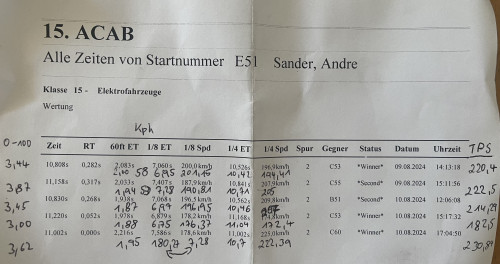 15. ACAB
Alle Zeiten von Startnummer E51 Sander, Andre
Klasse 15 - Elektrofahrzeuge
Wertung
Kph
0-100
Zeit RT 60ft ET 1/8 ET 1/8 Spd 1/4 ET 1/4 Spd Spur Gegner Status Datum Uhrzeit TPS
10,808s 0,282s 2,083s 7,060s 200,0km/h 10,526s 196,9km/h 2 C53 *Winner* 09.08.2024 14:13:18 220,4
3,44 2,00 58 6,95 201,16 10,42 194,41
11,158s 0,317s 2,033s 7,407s 187,9km/h 10,841s 207,9km/h 2 C55 *Second* 09.08.2024 15:11:56 222,5
3,87 1,94 59 7,28 190,81 10,71 205
10,830s 0,268s 1,938s 7,068s 196,5km/h 10,562s 209,8km/h 2 B51 *Second* 10.08.2024 12:06:08
3,45 1,87 6,97 196,95 10,46
11,220s 0,052s 1,978s 6,879s 178,2km/h 11,168s 2 C53 *Winner* 10.08.2024 15:17:32
3,00 1,88 6,75 176,37 11,04 172,4 182,5
11,002s 0,000s 2,216s 7,586s 178,6km/h 11,002s 225,0km/h 2 C60 *Winner* 10.08.2024 17:04:50
3,62 1,95 180,27 7,28 10,7 222,39